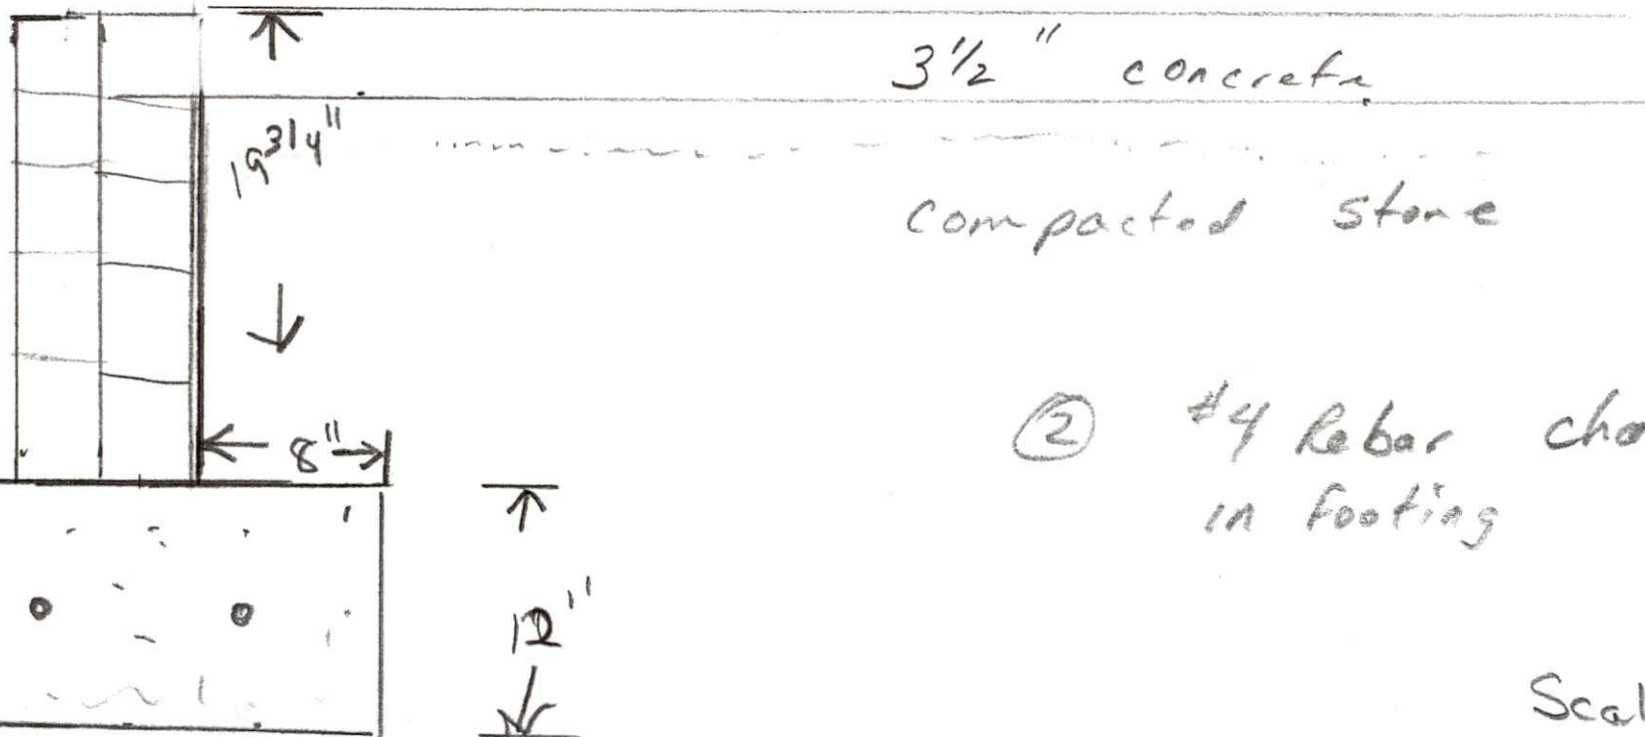 3 1/2 " concrete
19 3/4"
compacted stone
8"
② #4 Rebar cha
in footing
12"
Scal